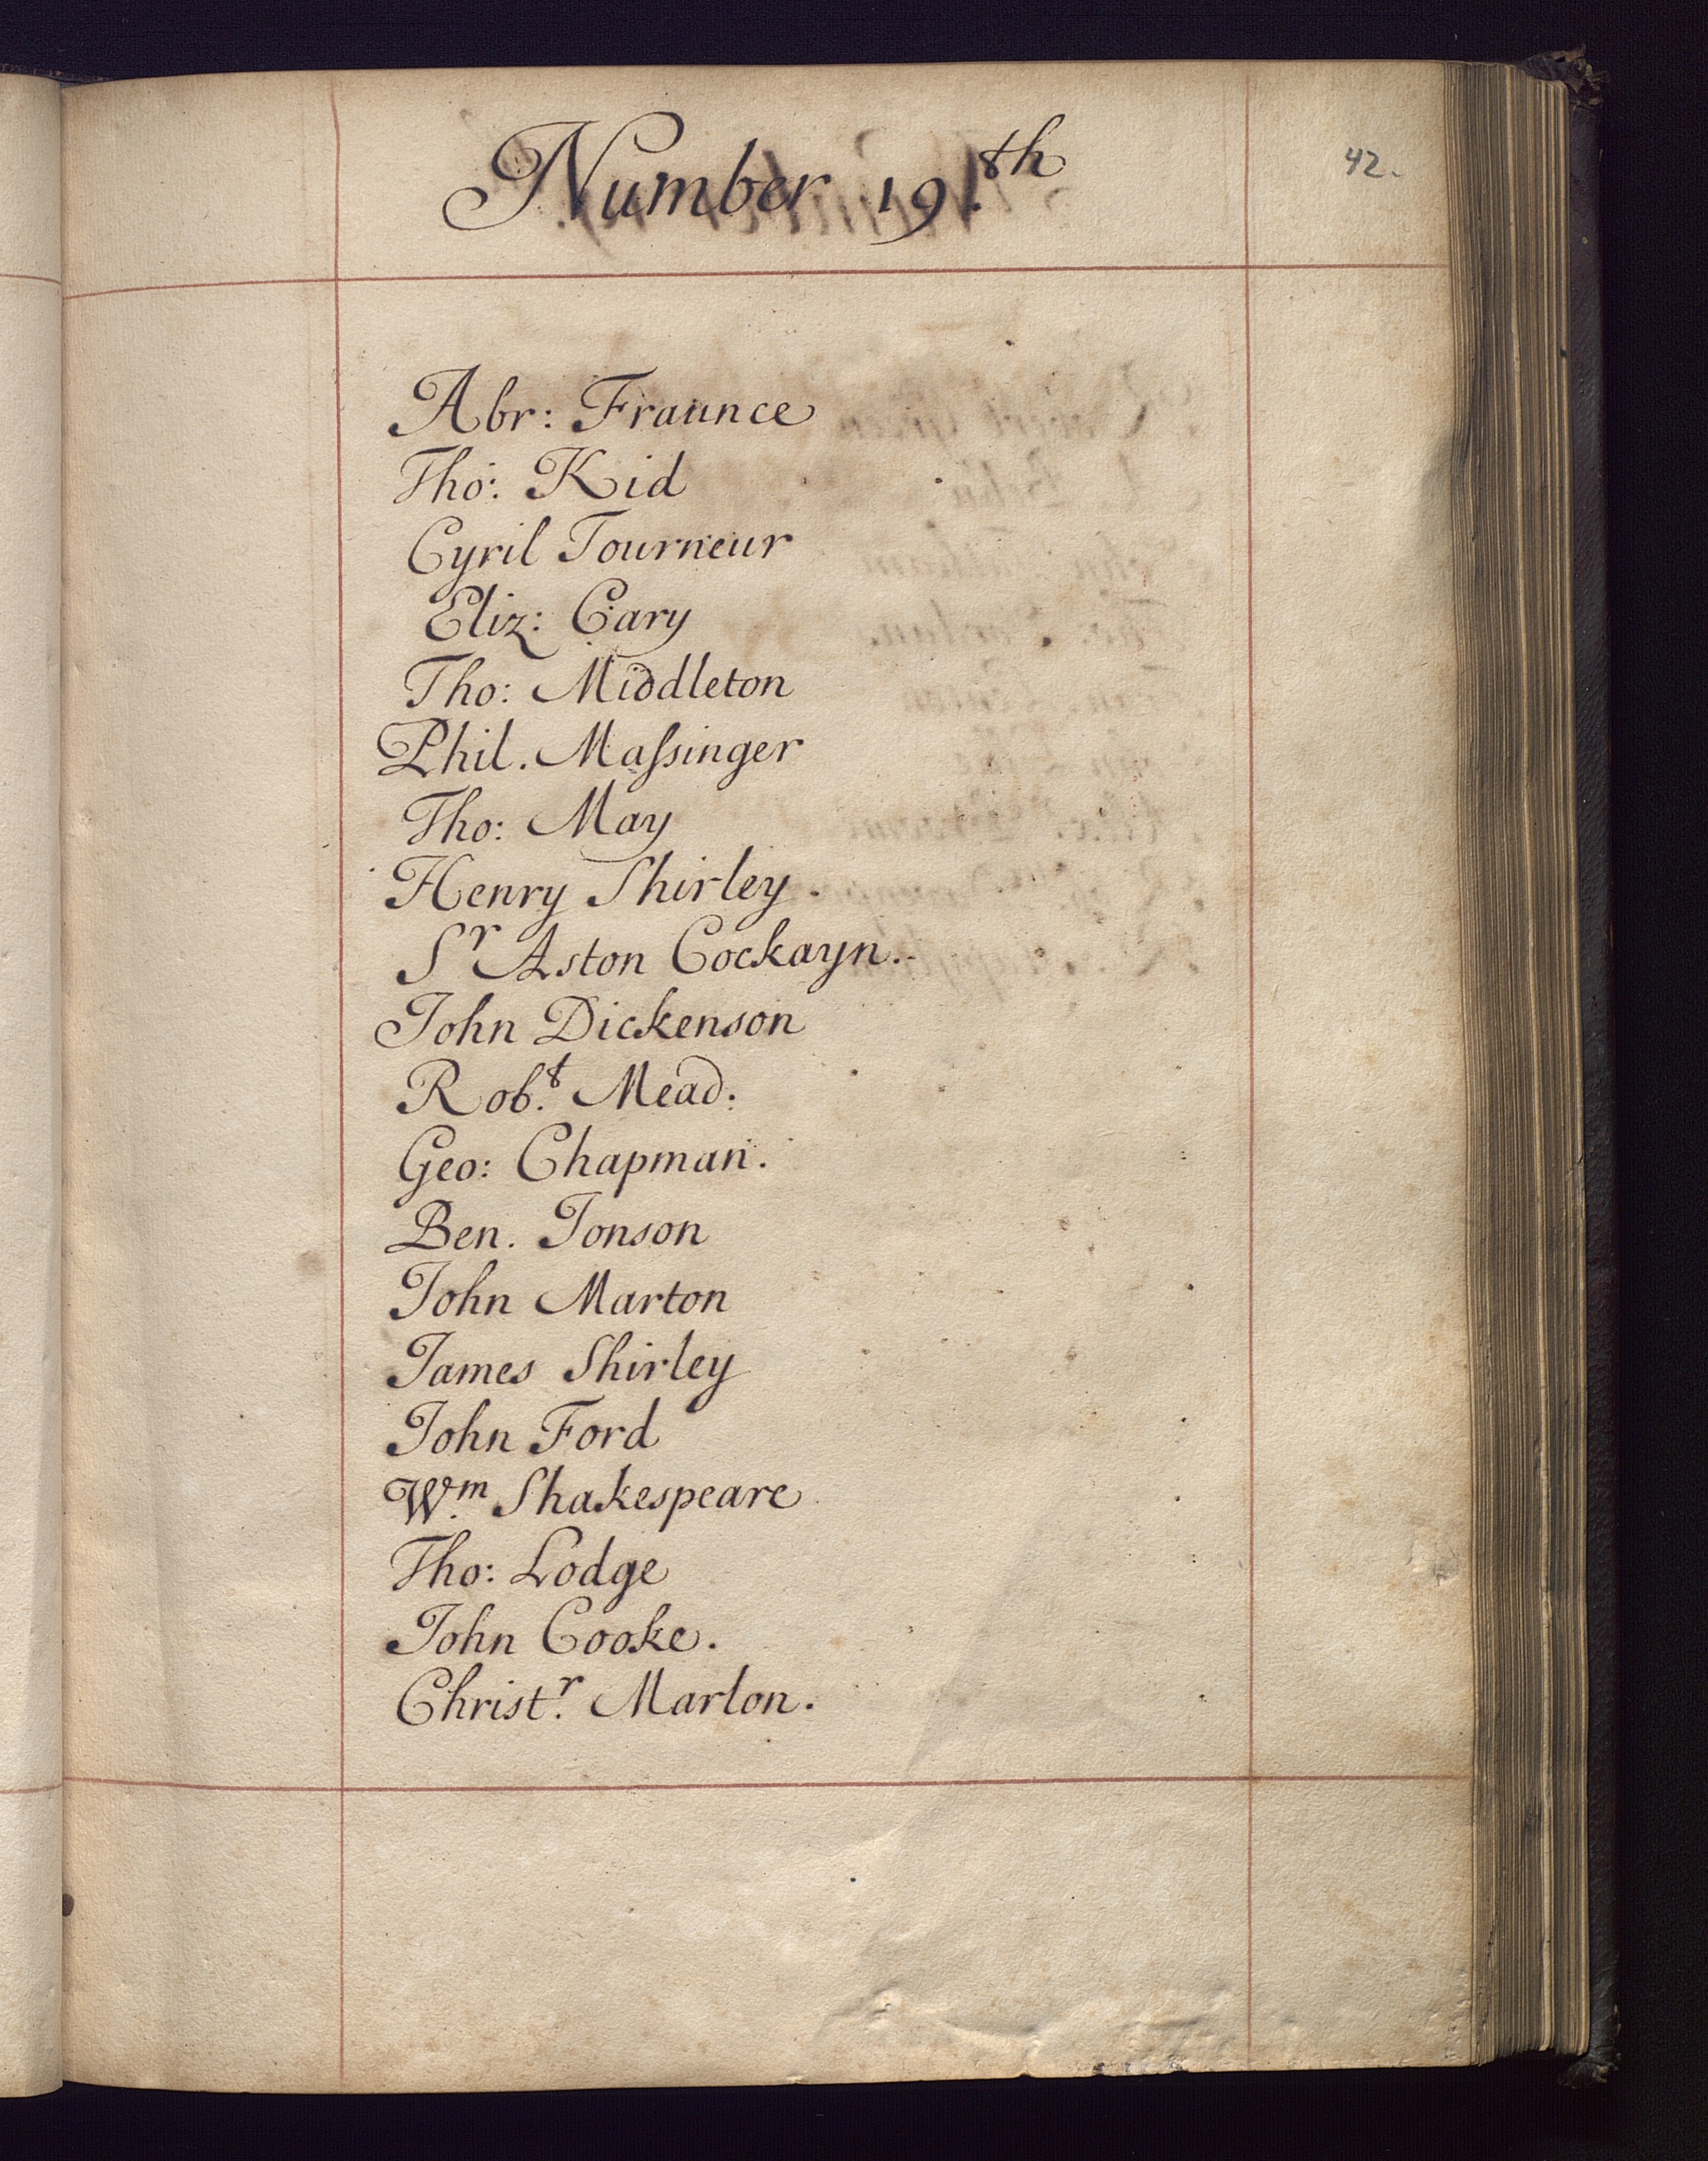 Number 19.th
42.
Abr: Fraunce
Tho: Kid
Cyril Tourneur
Eliz: Cary
Tho: Middleton
Phil. Maſsinger
Tho: May
Henry Shirley.
Sr Aston Cockayn.
John Dickenson
Rob.t Mead.
Geo: Chapman.
Ben. Jonson
John Marton
James Shirley
John Ford
W.m Shakespeare
Tho: Lodge
John Cooke.
Christ.r Marlon.